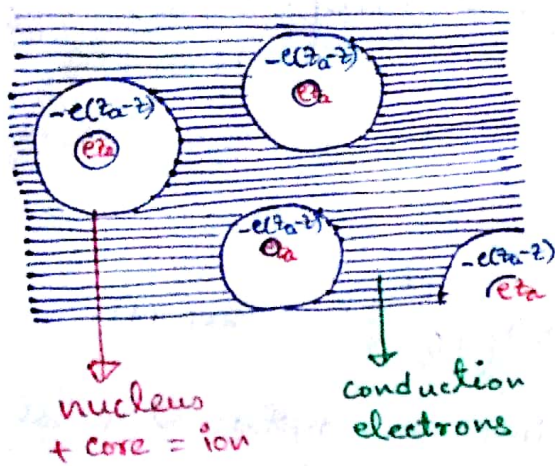 -e(Za-Z)
eZa
-e(Za-Z)
eZa
-e(Za-Z)
eZa
-e(Za-Z)
eZa
nucleus
+ core = ion
conduction
electrons